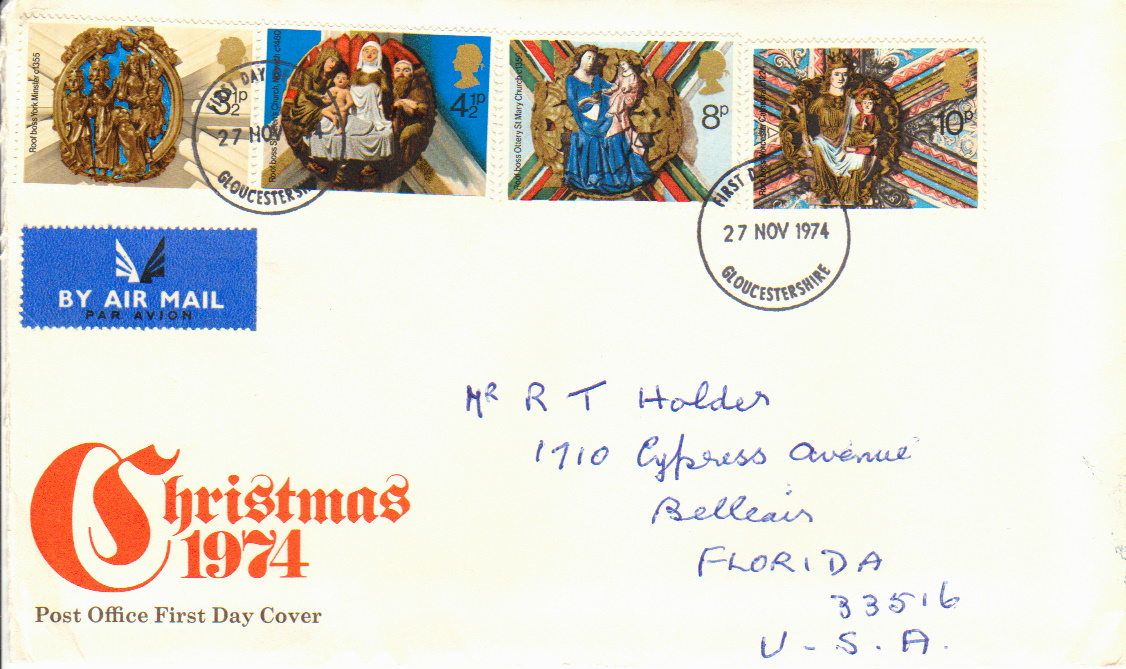 Roof boss York Minster c1355
3½p
Roof boss St Helen's Church, Norwich c1480
4½p
Roof boss Ottery St Mary Church c1350
8p
Roof boss Worcester Cathedral c1224
10p
FIRST DAY
27 NOV
GLOUCESTERSHI
FIRST D
27 NOV 1974
GLOUCESTERSHIRE
BY AIR MAIL
PAR AVION
Mr R T Holder
1910 Cypress Avenue
Belleair
FLORIDA
33516
U-S.A.
Christmas
1974
Post Office First Day Cover